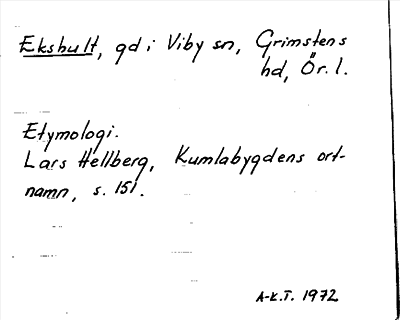 Ekshult, gd i Viby sn, Grimstens
hd, Ör. l.
Etymologi.
Lars Hellberg, Kumlabygdens ort-
namn, s. 151.
A-K.T. 1972